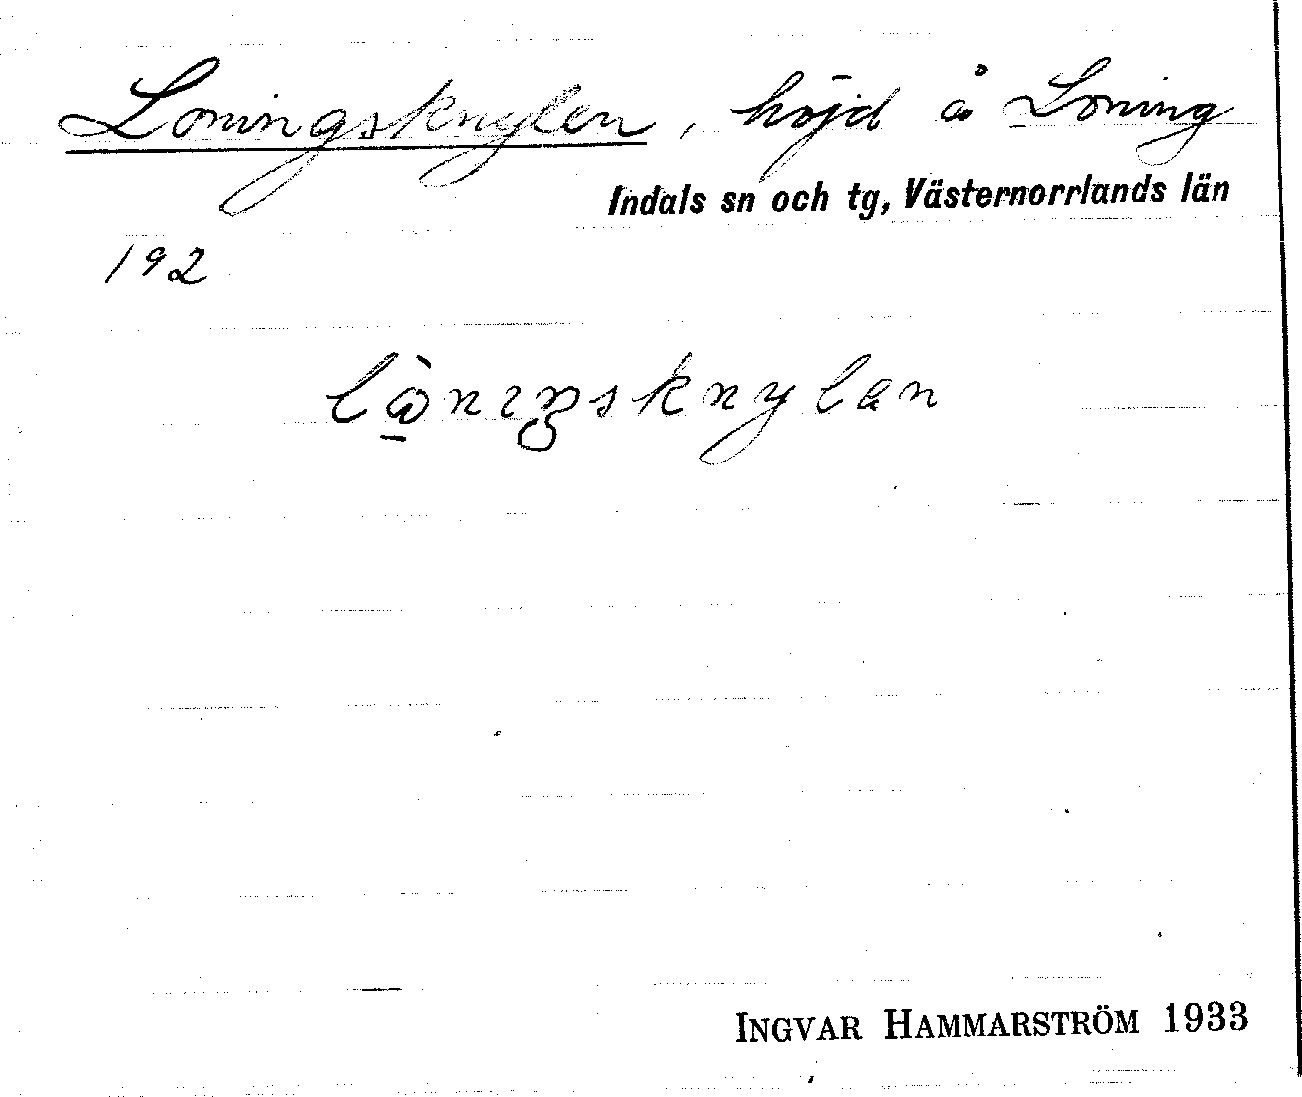 Loningsknylen, höjd å Loning
Indals sn och tg, Västernorrlands län
192
INGVAR HAMMARSTRÖM 1933